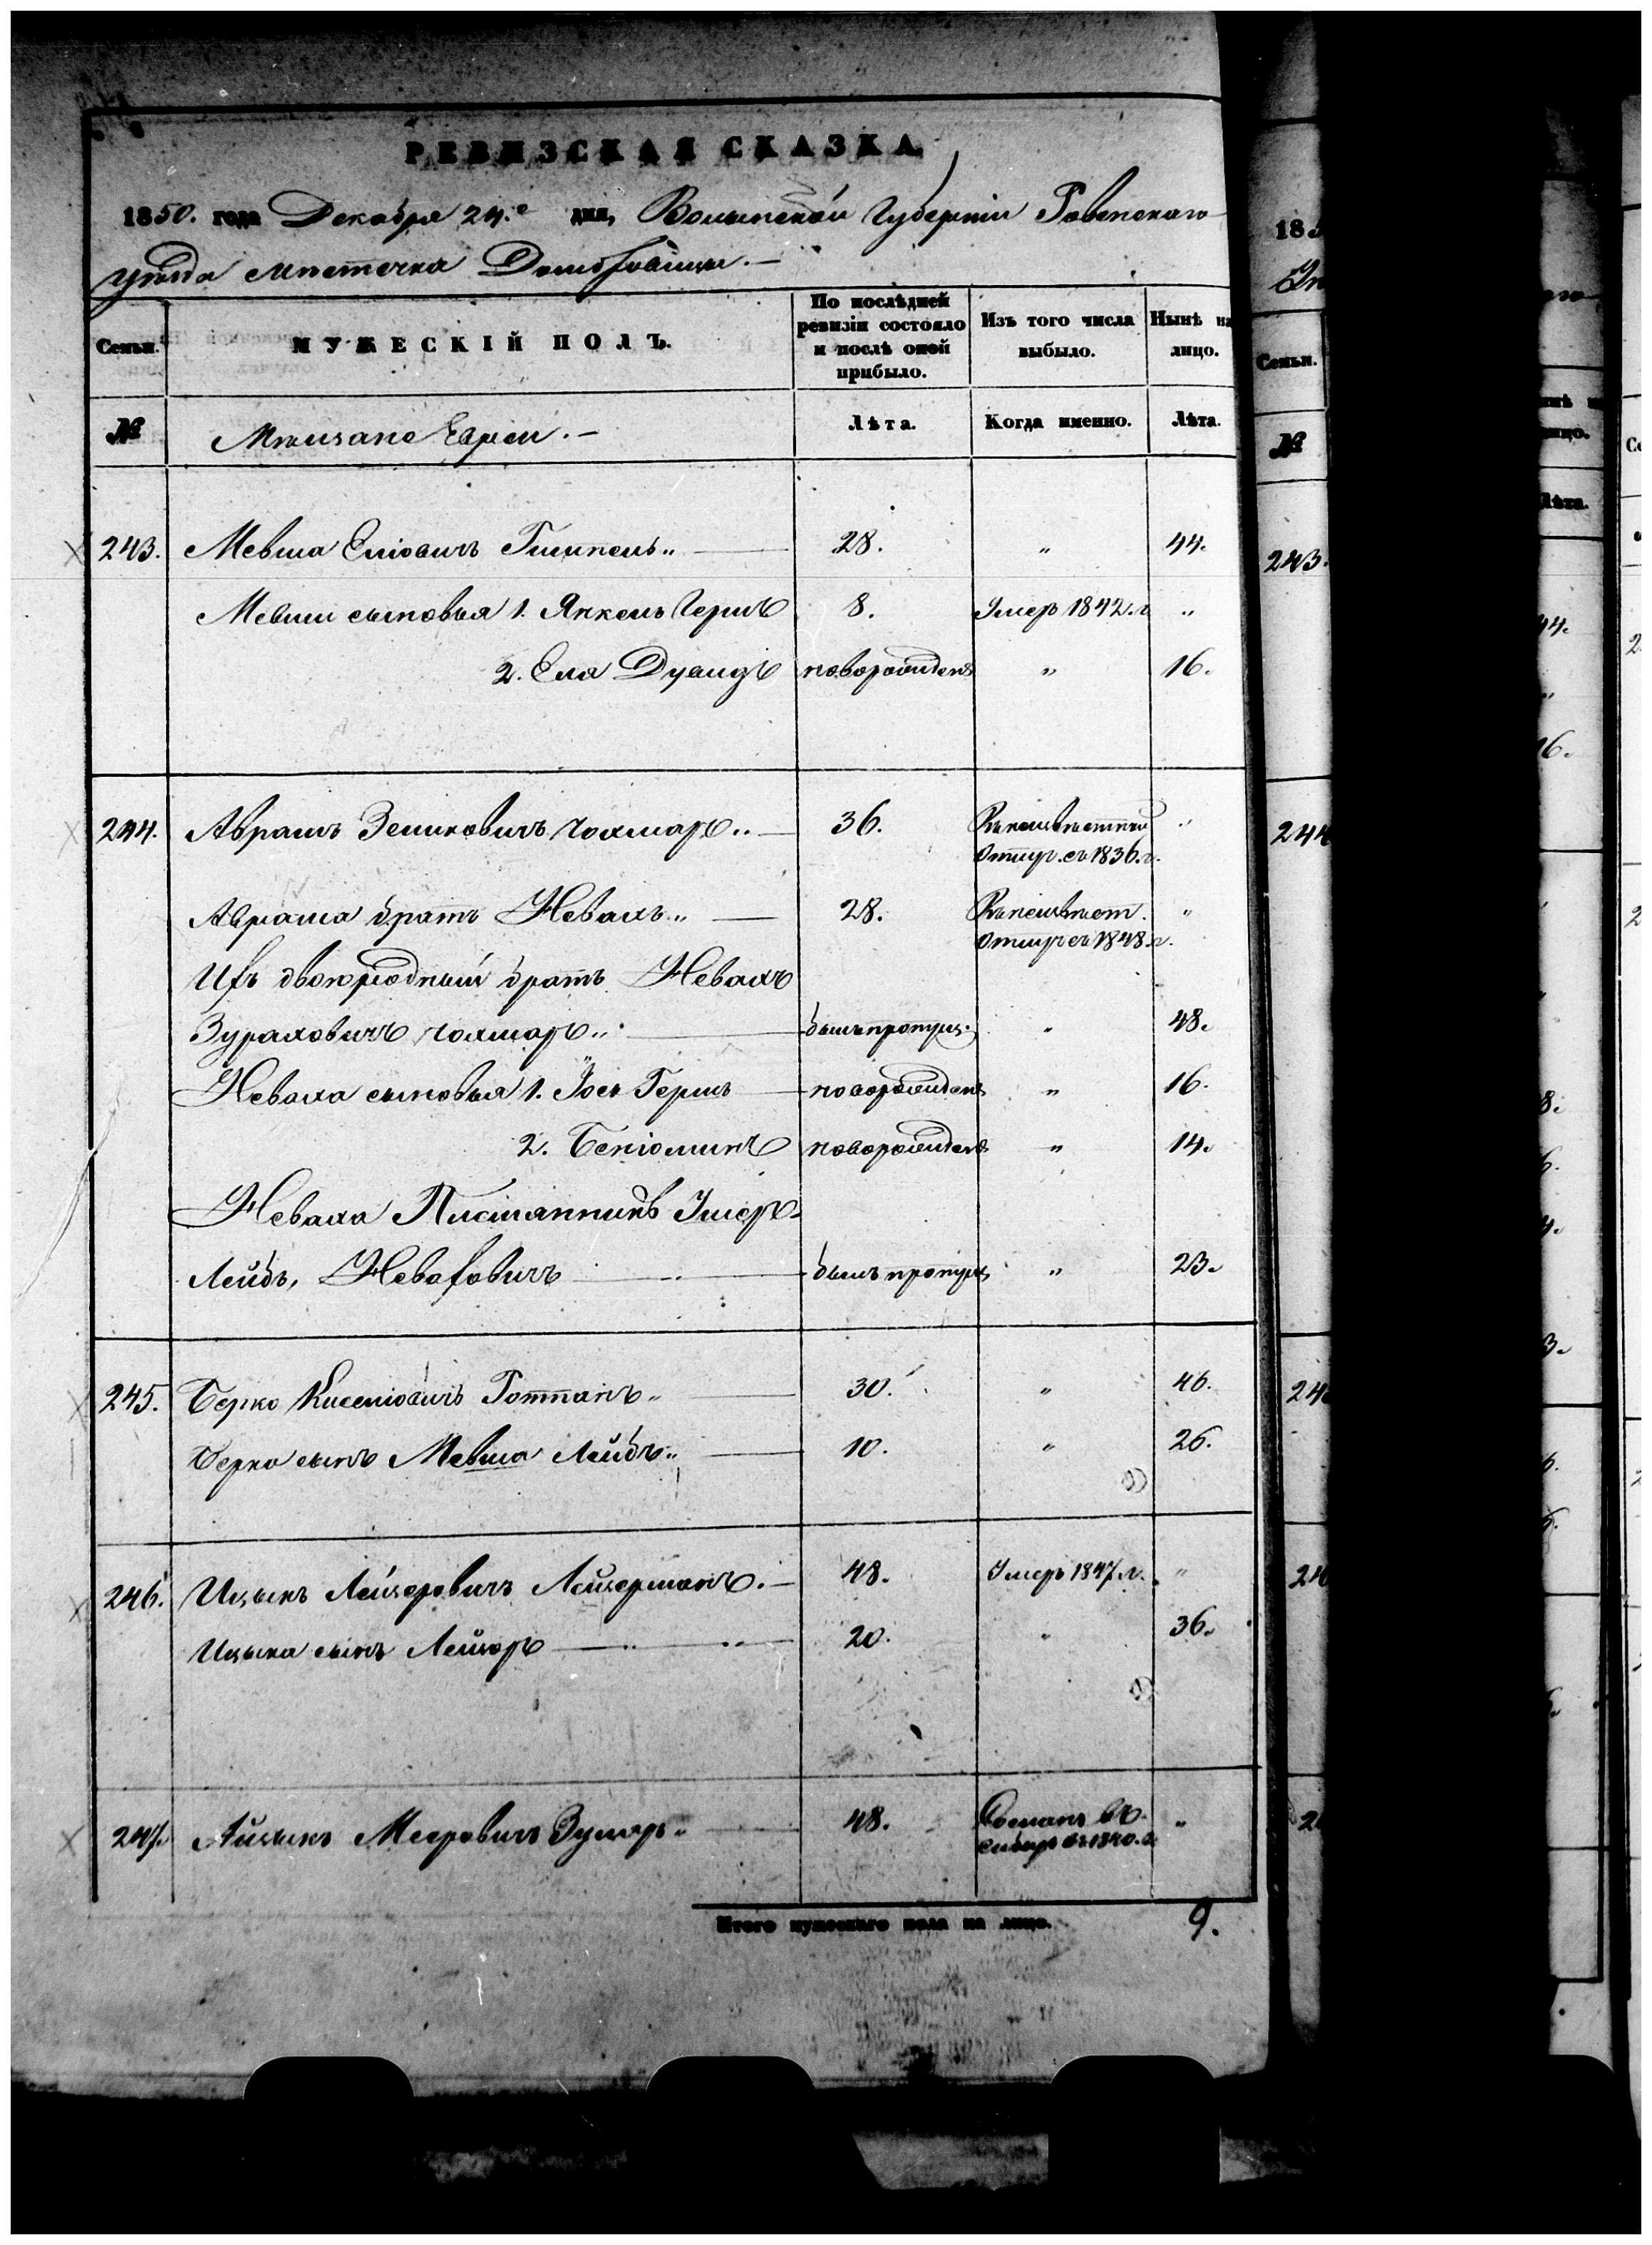 РЕВИЗСКАЯ СКАЗКА
1850. года Декабря 24.го дня, Волынской Губерніи Ровенскаго
уѣзда мѣстечка Домбровицы.—
Семьи. МУЖЕСКІЙ ПОЛЪ. По послѣдней ревизіи состояло и послѣ оной прибыло. Изъ того числа выбыло. Нынѣ на лицо.
№ Мѣщане Евреи.— Лѣта. Когда именно. Лѣта.
243. Мевша Еліовичъ Гимпель„ 28. „ 44.
Мевши сыновья 1. Янкель Герш 8. Умеръ 1842.г „
2. Еля Дувидъ новорожденъ „ 16.
244. Аврамъ Зеликовичъ 36. Въ неизвѣстной „
Отлуч. съ 1836.г.
Аврама братъ Невахъ„ 28. Въ неизвѣст. „
Отлуч съ 1848.г.
Ихъ двоюродный братъ Невахъ
былъ пропущ. „ 48.
Неваха сыновья 1. Іось Герш новорожденъ „ 16.
2. Беніоминъ новорожденъ „ 14.
Неваха Племянникъ
Лейбъ, Неваховичъ былъ пропущ. „ 23.
245. Берко Киселіовичъ 30. „ 46.
Берка сынъ Мевша Лейбъ„ 10. „ 26.
246. Ицыкъ Лейзеровичъ Лейзерманъ.— 48. Умеръ 1847.г. „
Ицыка сынъ Лейзоръ 20. „ 36.
247. Айзыкъ Мееровичъ 48. Сосланъ въ „
Сибирь въ 1840.г.
Итого мужескаго пола на лицо. 9.
185
№
243.
244